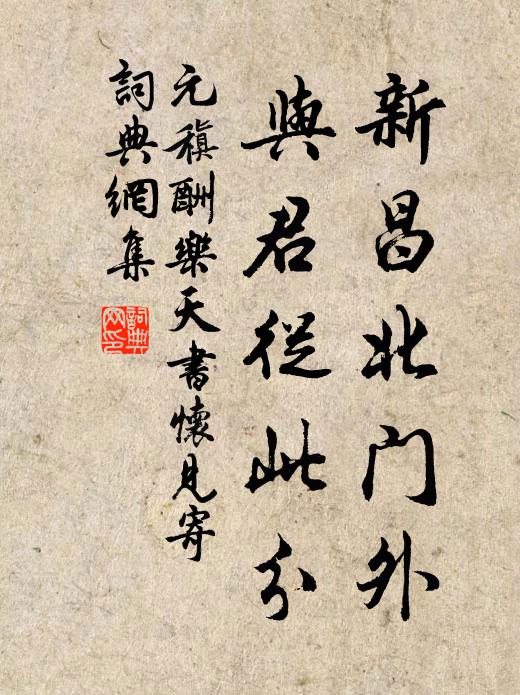 新昌北门外
與君從此分
元稹酬樂天書懷見寄
詞典網集
詞典
网印